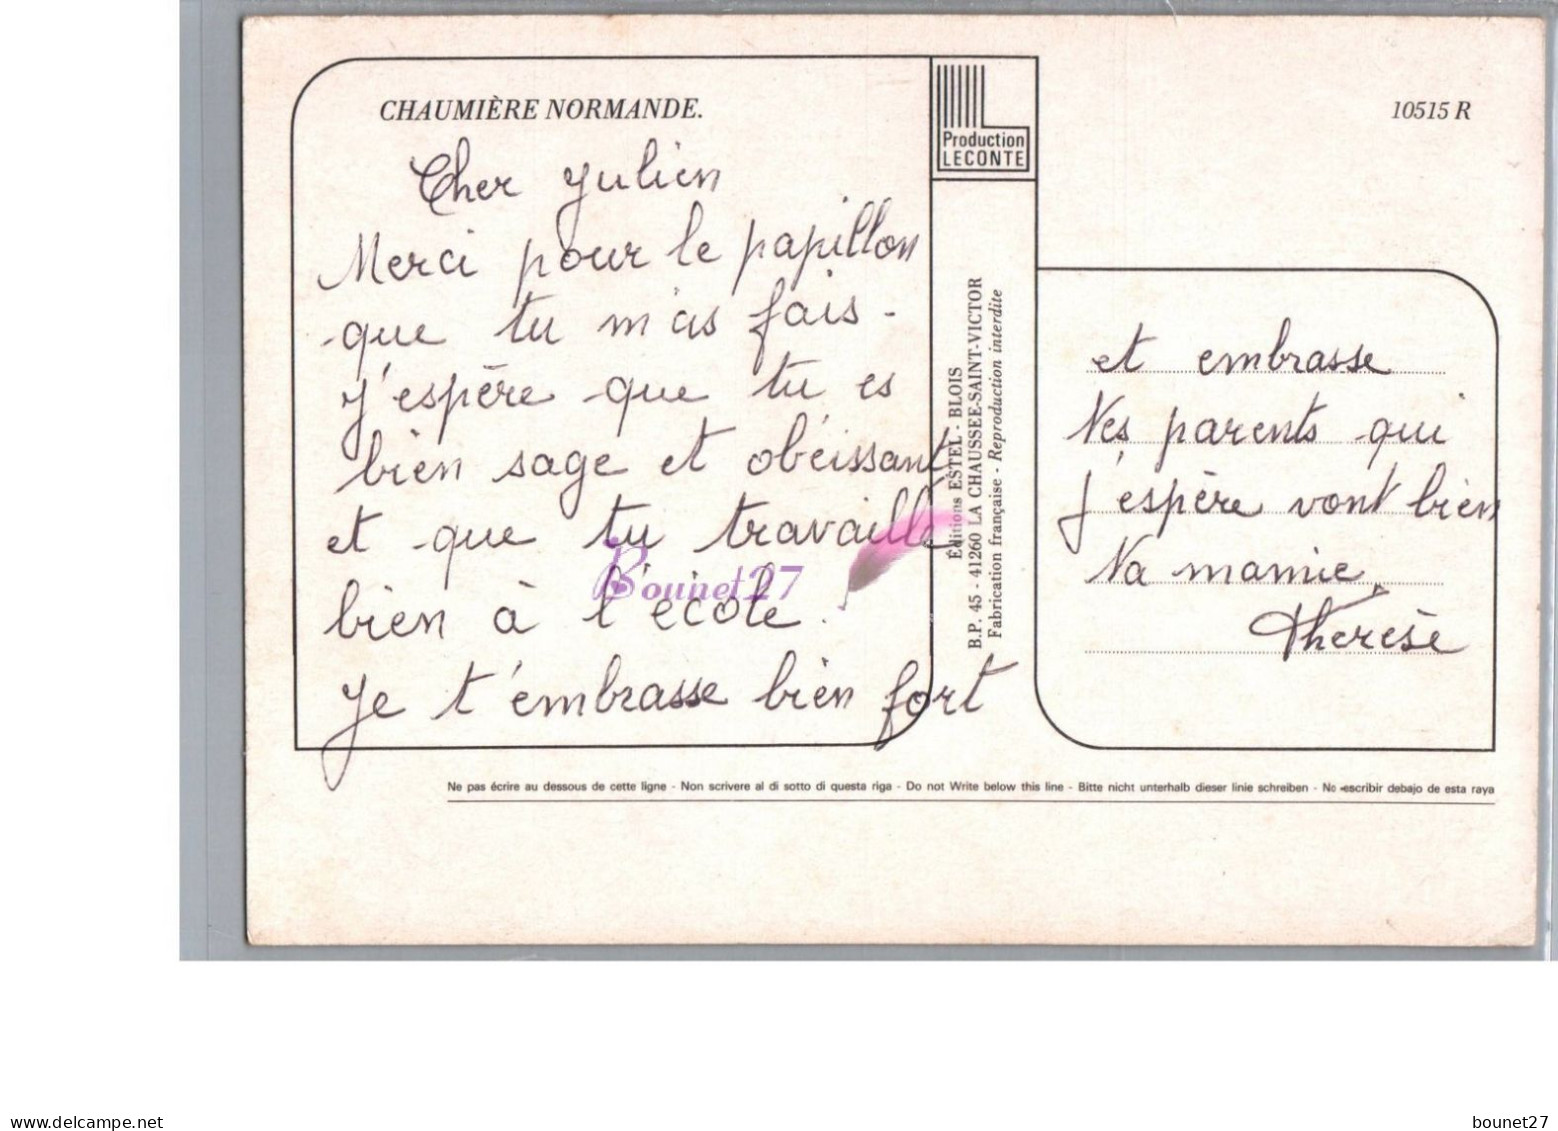 CHAUMIÈRE NORMANDE.
10515 R
Production
LECONTE
Cher Julien
Merci pour le papillon
que tu m'as fais.
J'espère que tu es
bien sage et obéissant
et que tu travaille
bien à l'école.
Je t'embrasse bien fort
et embrasse
Tes parents qui
j'espère vont bien
Ta mamie
Thérèse
Éditions ESTEL - BLOIS
B.P. 45 - 41260 LA CHAUSSEE-SAINT-VICTOR
Fabrication française - Reproduction interdite
Bounet27
Ne pas écrire au dessous de cette ligne - Non scrivere al di sotto di questa riga - Do not Write below this line - Bitte nicht unterhalb dieser linie schreiben - No escribir debajo de esta raya
www.delcampe.net
bounet27